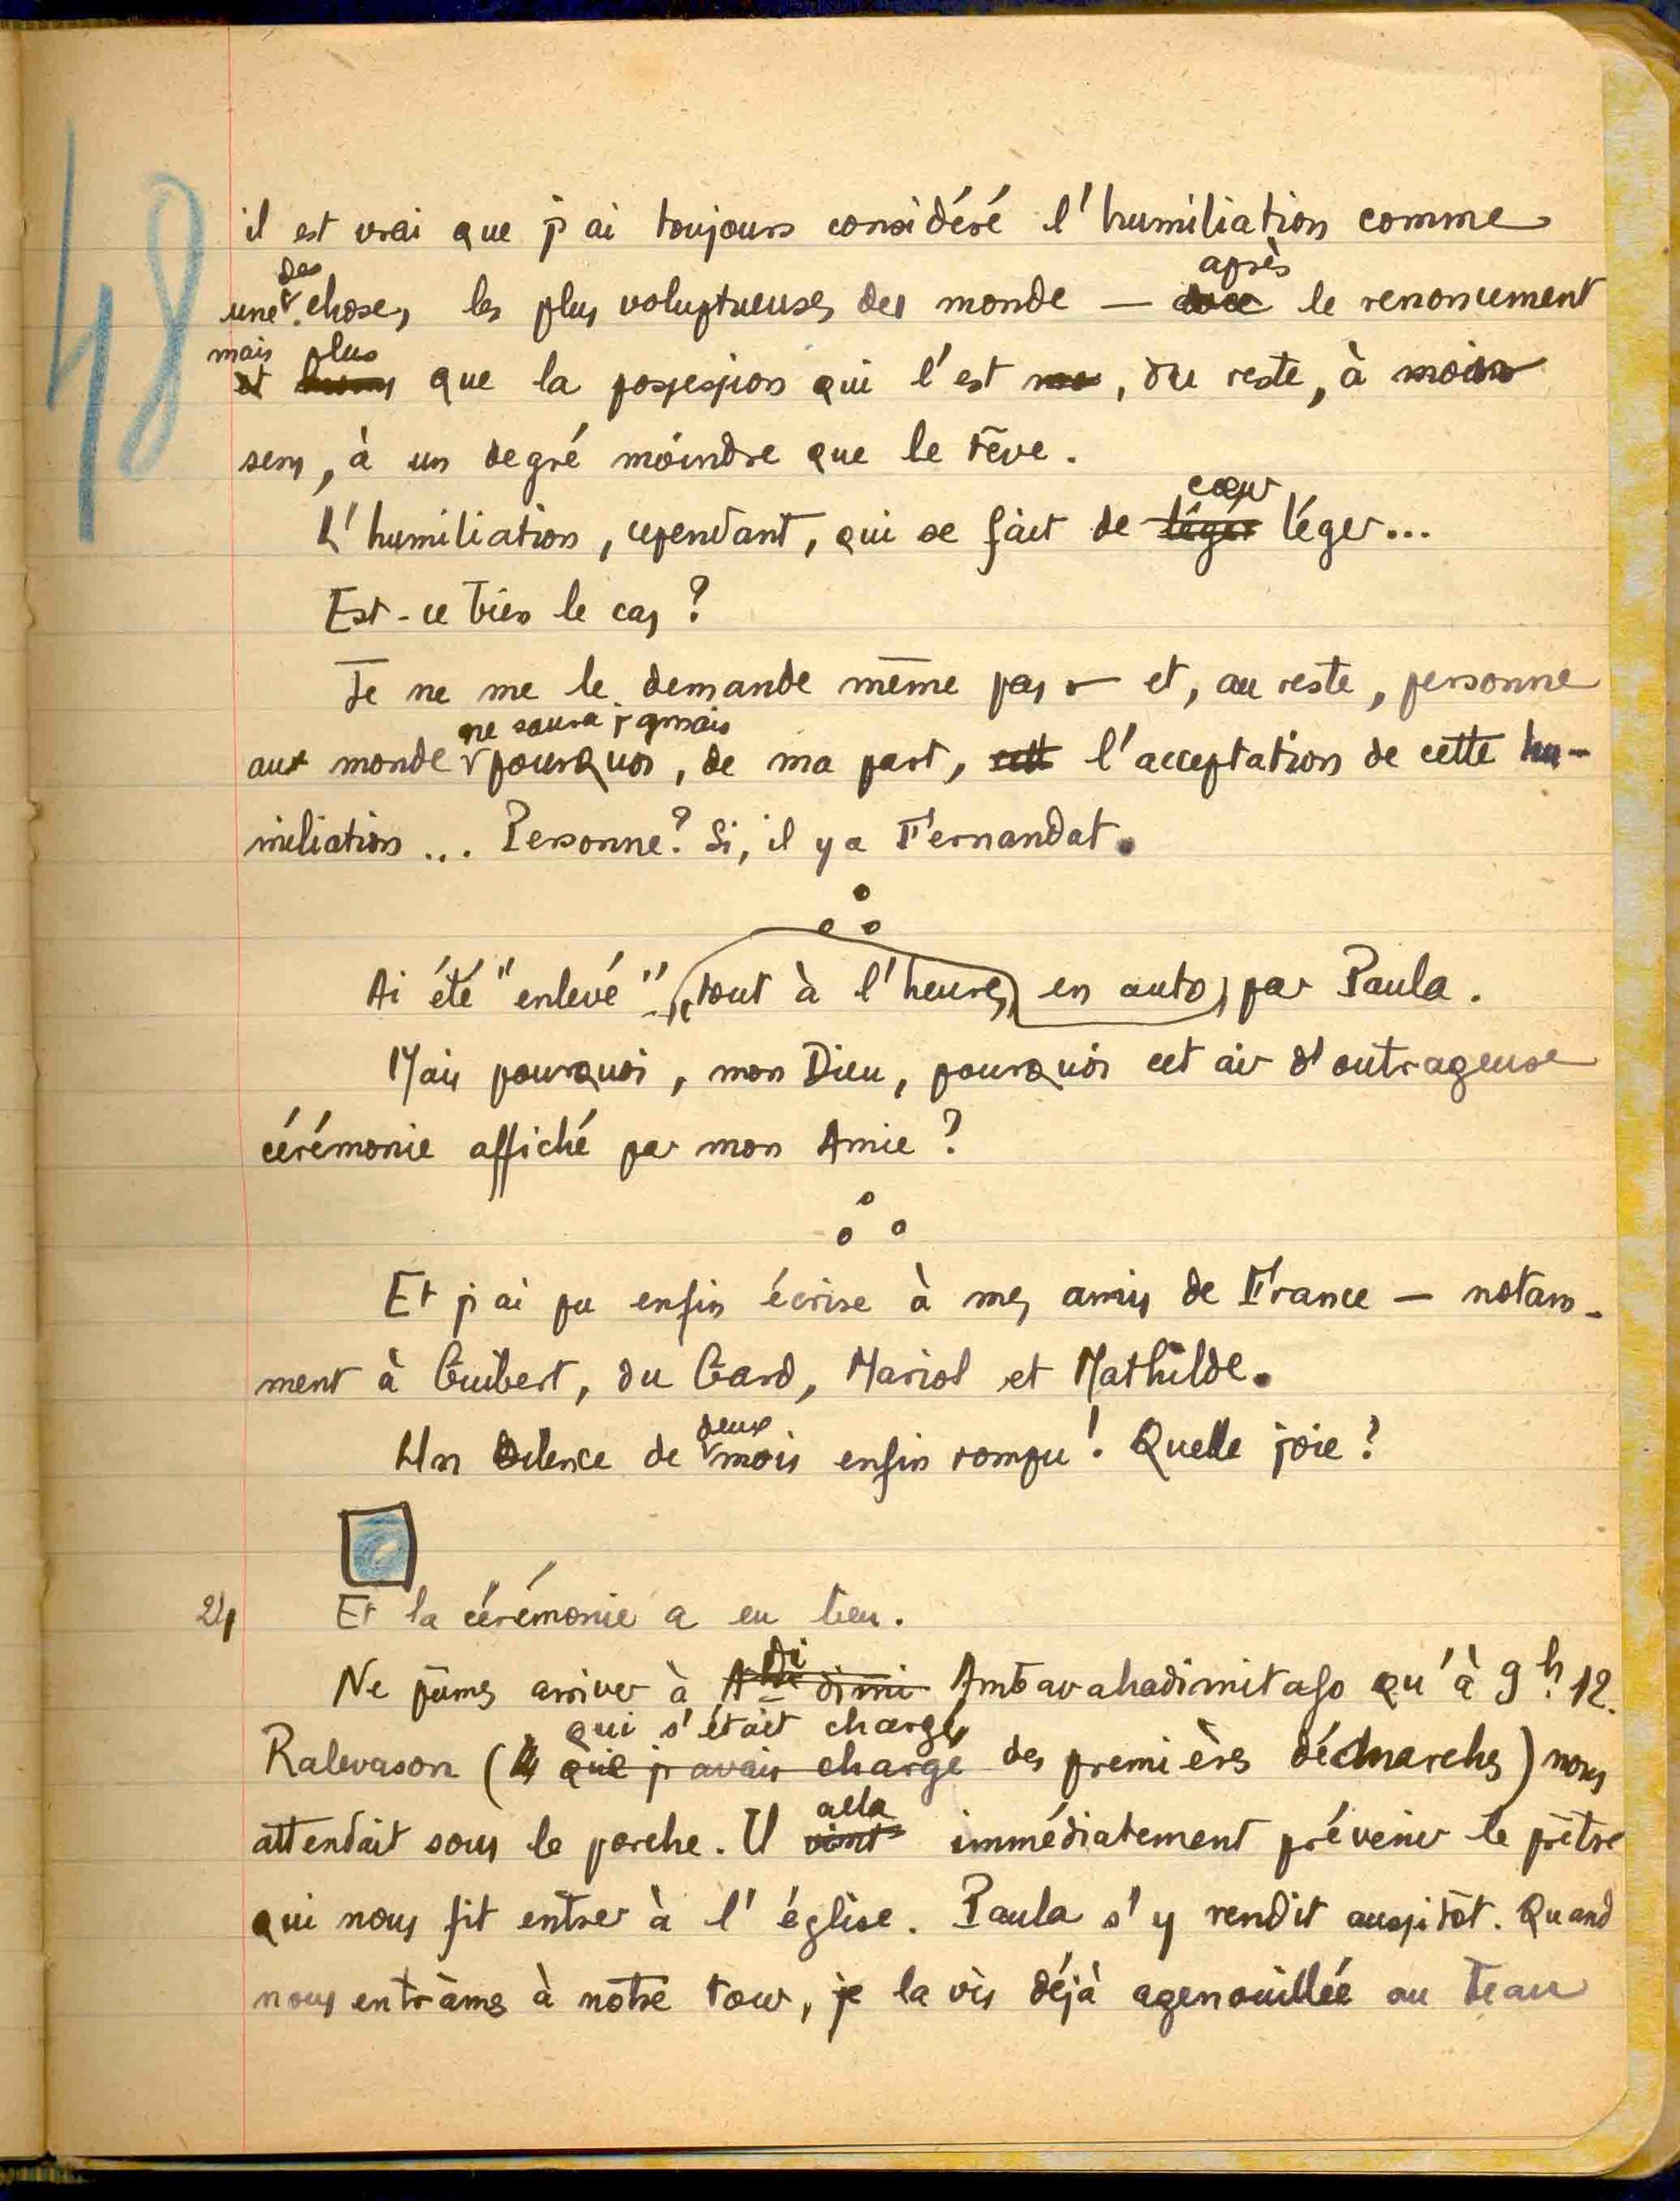 48
il est vrai que j'ai toujours considéré l'humiliation comme
des après
une choses les plus voluptueuses du monde — le renoncement
mais plus
et que la possession qui l'est, du reste, à mon
sens, à un degré moindre que le rêve.
cœur
L'humiliation, cependant, qui se fait de léger léger...
Est-ce bien le cas?
Je ne me le demande même pas — et, au reste, personne
ne saura jamais
au monde pourquoi, de ma part, cett l'acceptation de cette hu-
miliation... Personne? Si, il y a Fernandat.
Ai été "enlevé", tout à l'heure, en auto, par Paula.
Mais pourquoi, mon Dieu, pourquoi cet air d'outrageuse
cérémonie affiché par mon Amie?
Et j'ai pu enfin écrire à mes amis de France — notam-
ment à Guibert, du Gard, Mariol et Mathilde.
deux
Un silence de mois enfin rompu! Quelle joie?
24 Et la cérémonie a eu lieu.
Ne pûmes arriver à Ambavahadimitafo qu'à 9h. 12.
qui s'était chargé
Ralevason (que j'avais chargé des premières démarches) nous
alla
attendait sous le porche. Il vint immédiatement prévenir le prêtre
qui nous fit entrer à l'église. Paula s'y rendit aussitôt. Quand
nous entrâmes à notre tour, je la vis déjà agenouillée au beau